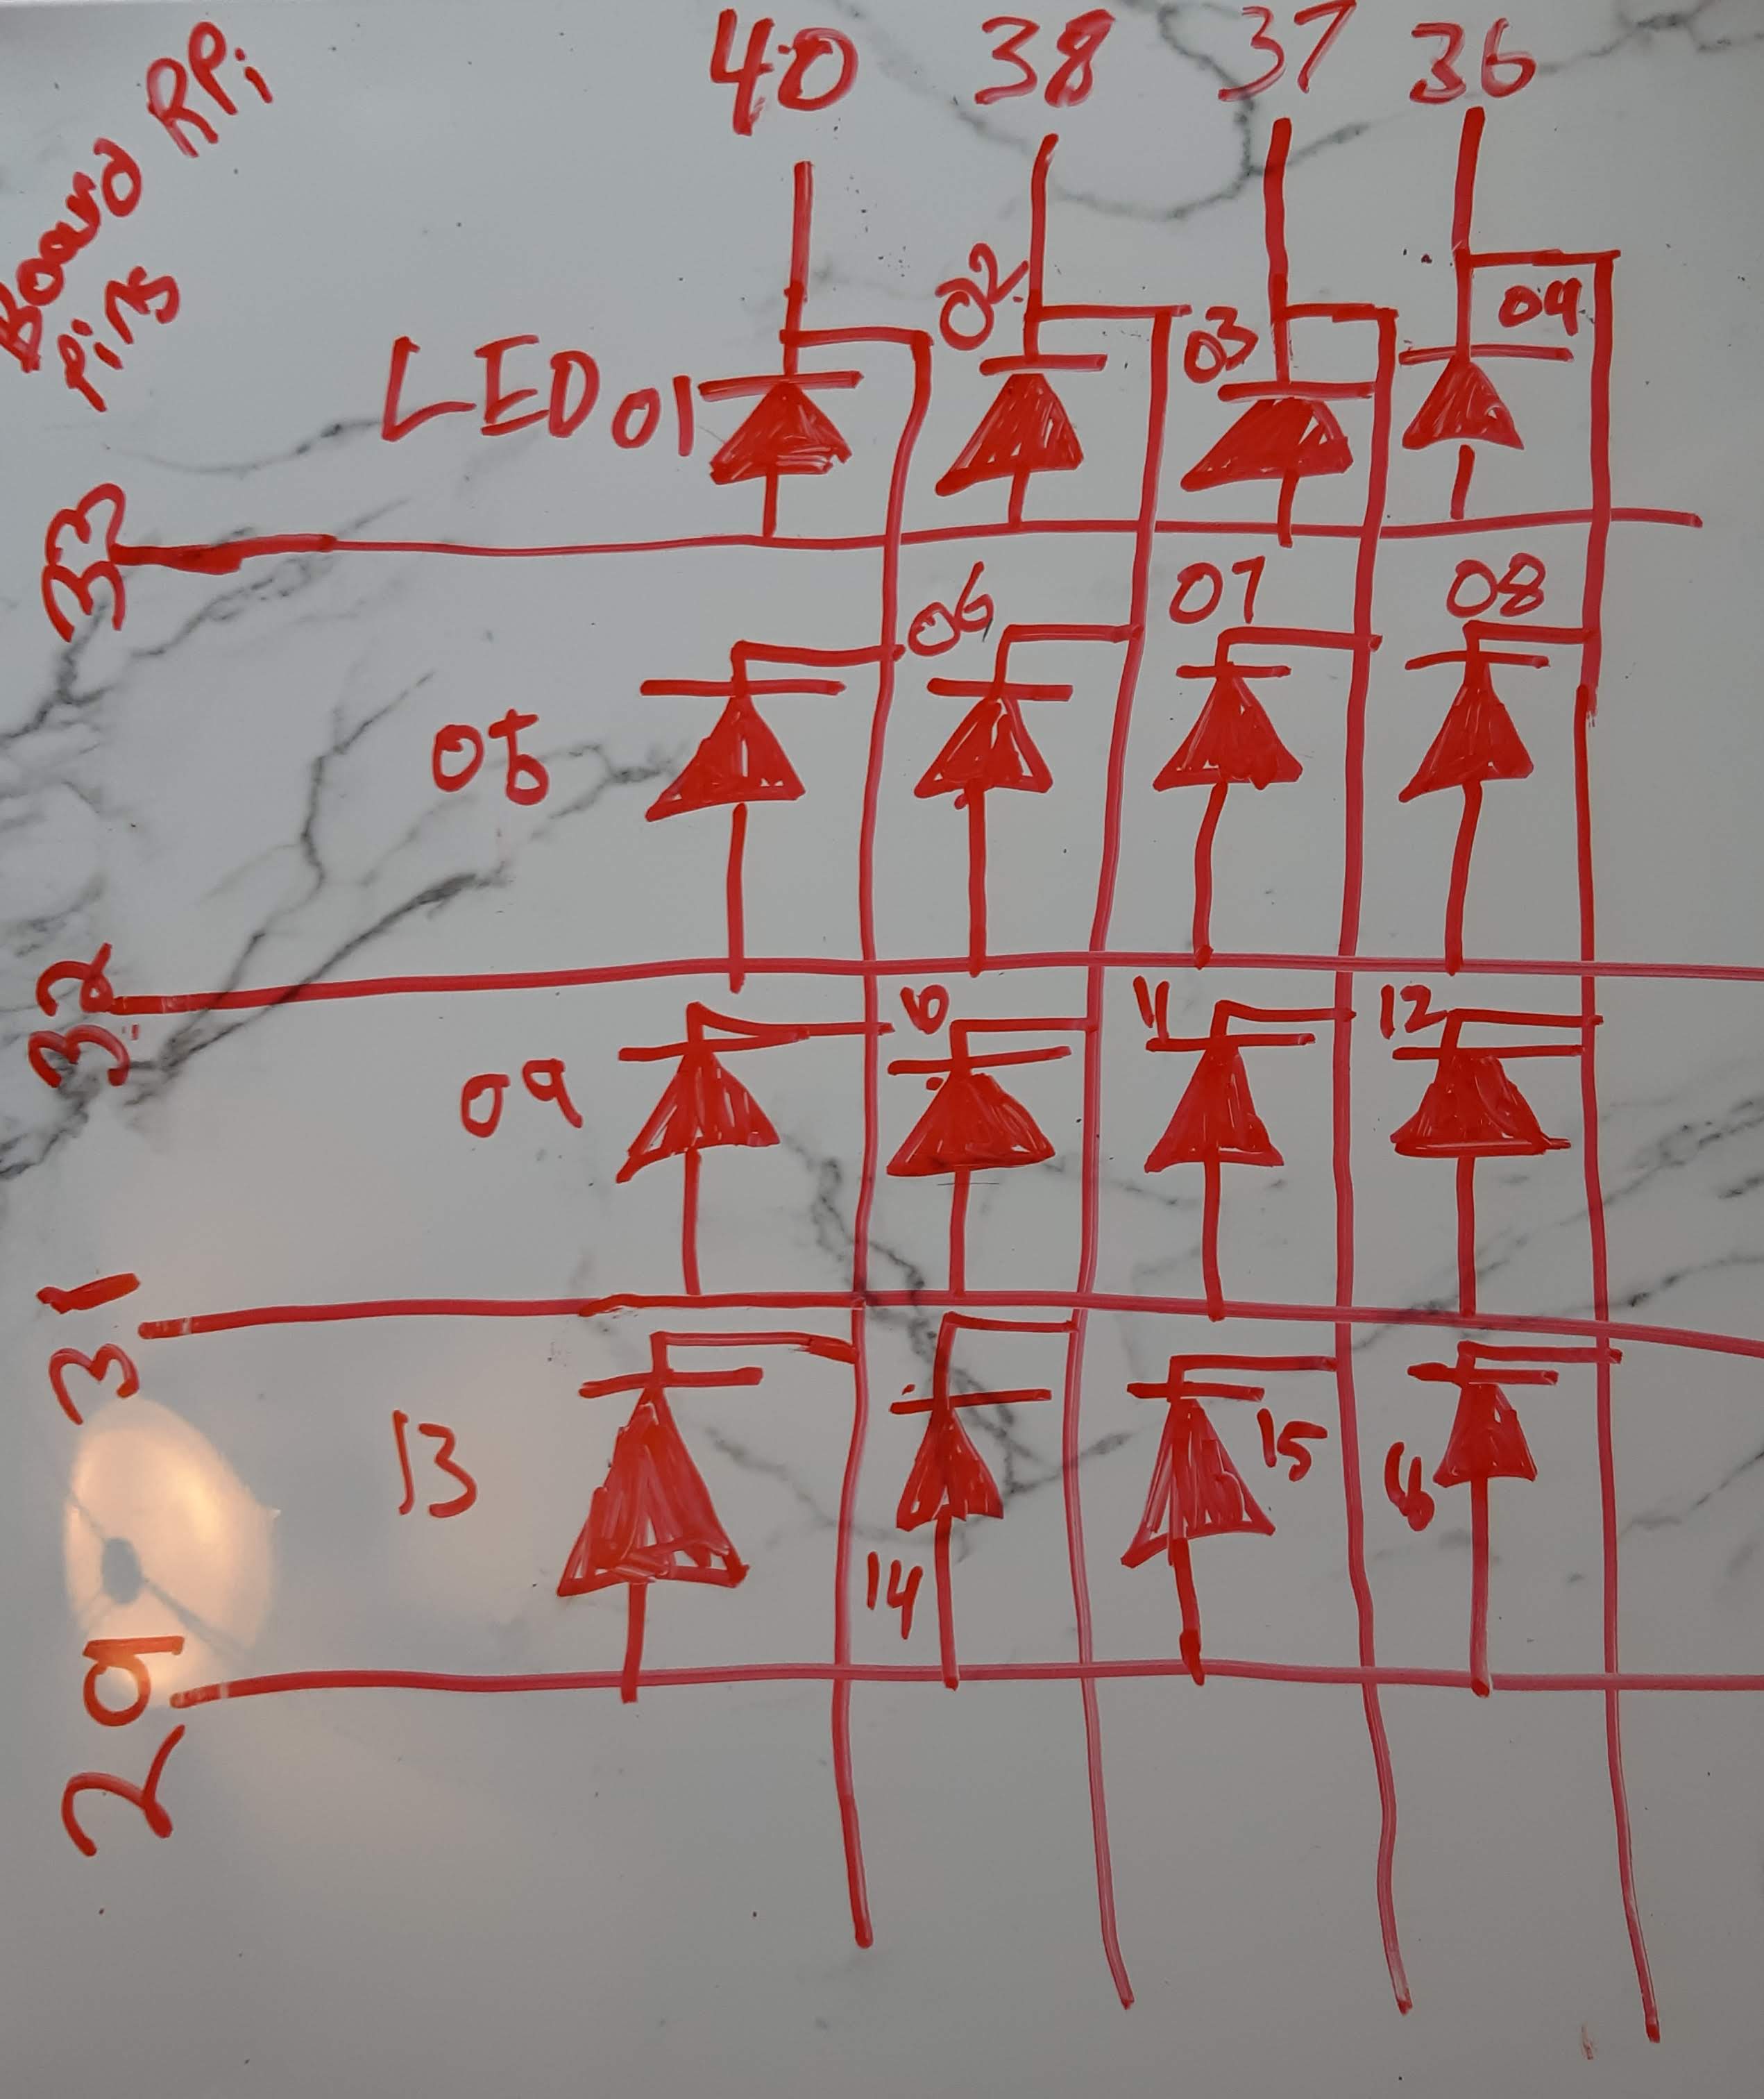 Board RPi
Pins
40 38 37 36
LED 01 02 03 04
33
05 06 07 08
32
09 10 11 12
31
13 14 15 16
29